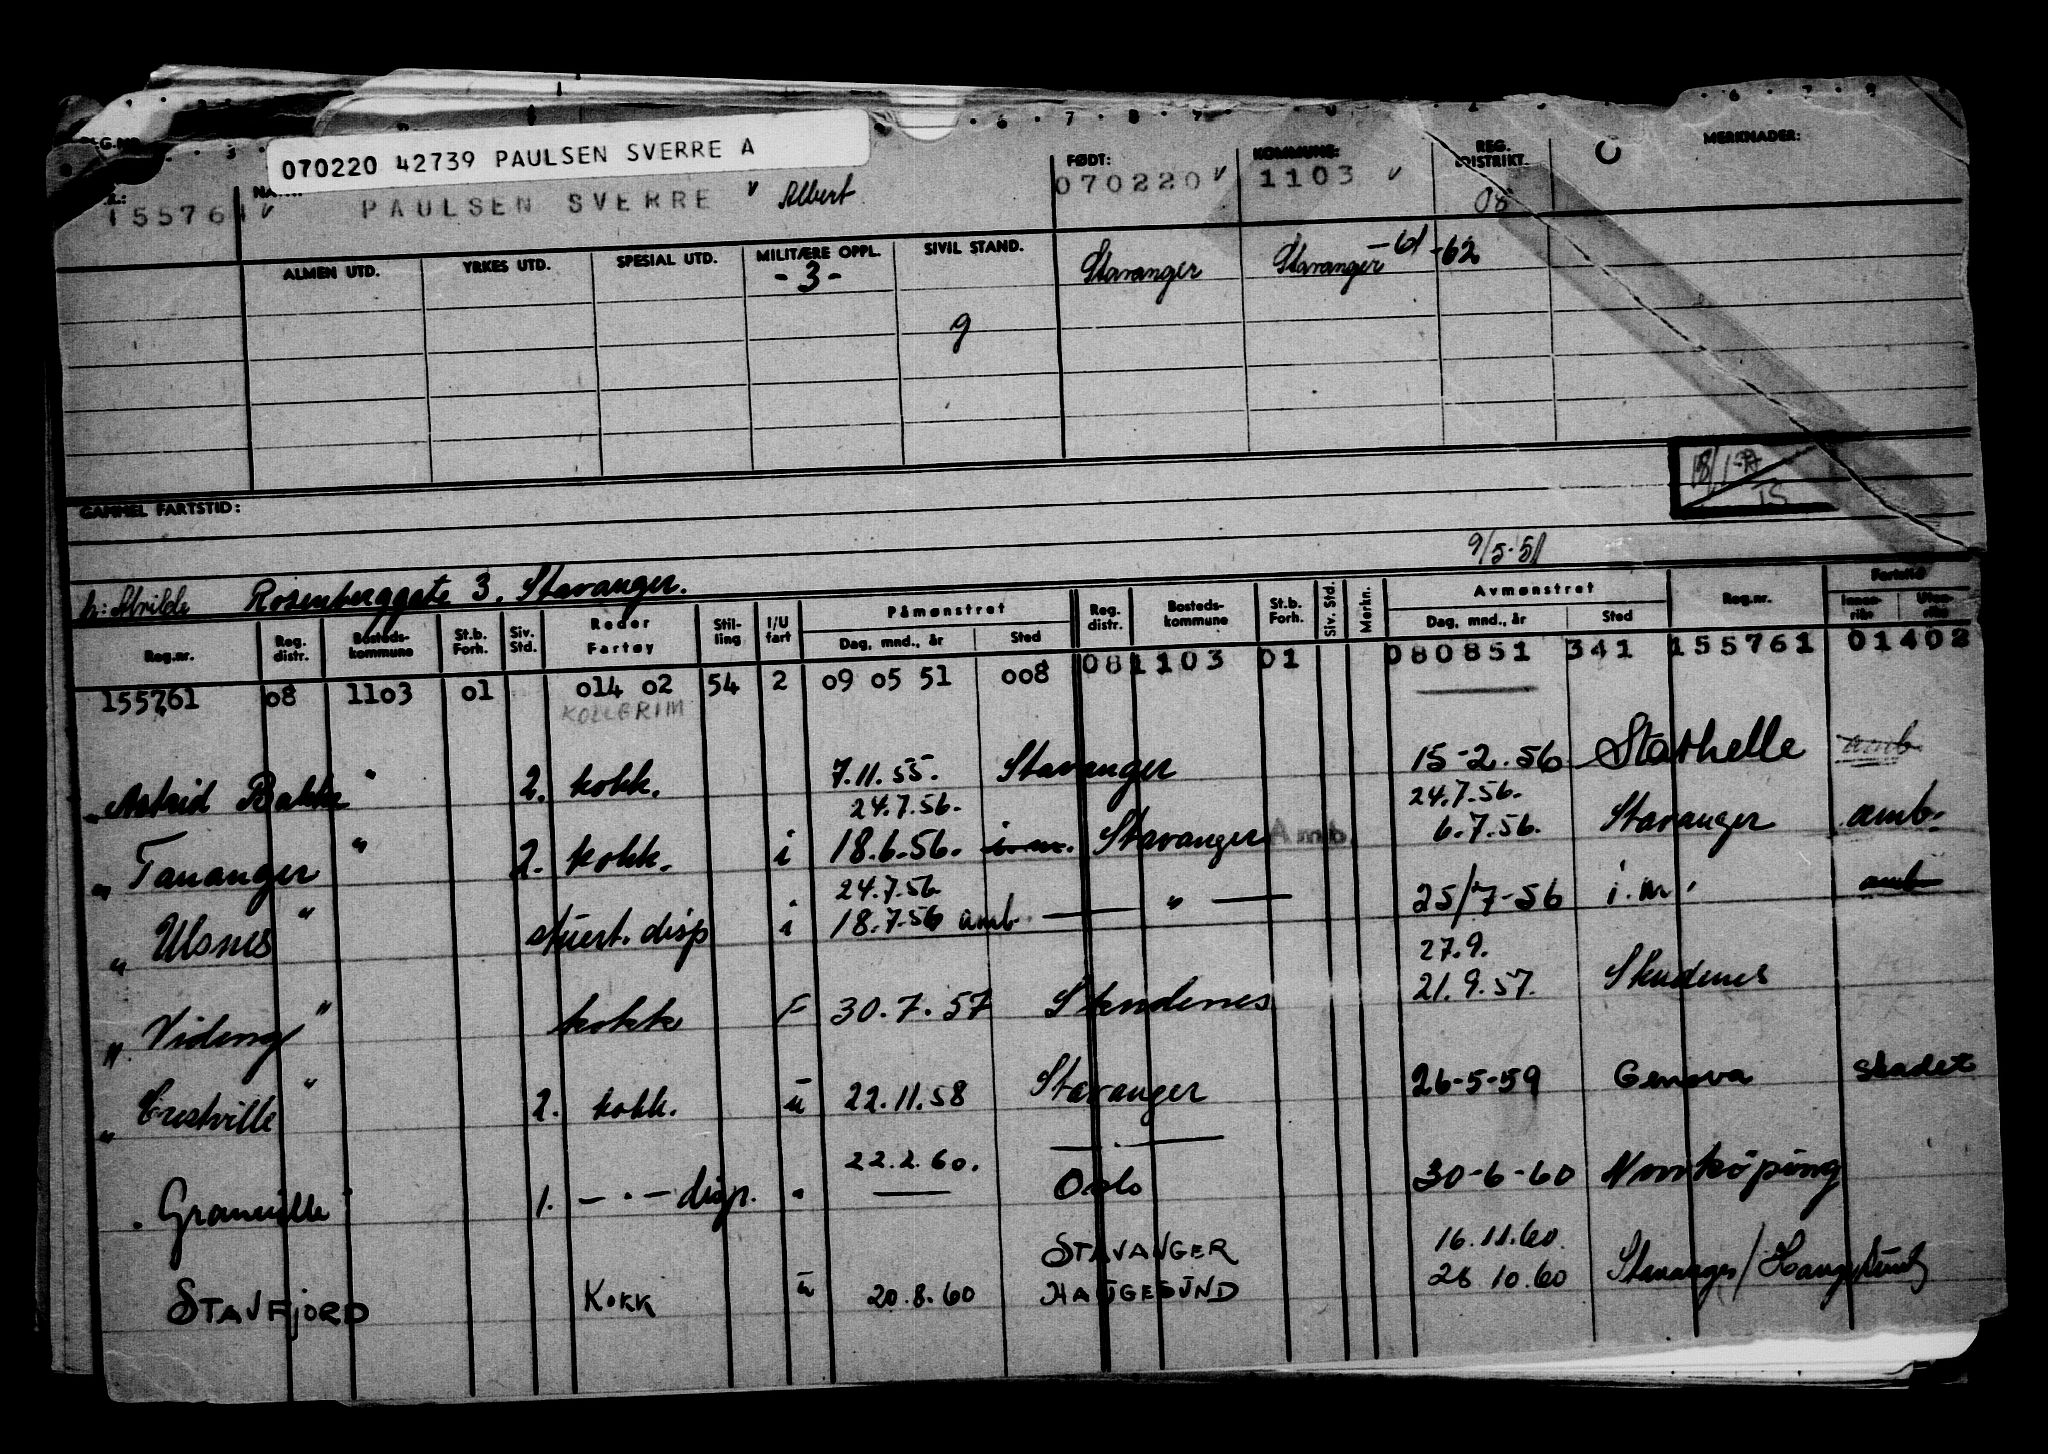 070220 42739 PAULSEN SVERRE A
FØDT: KOMMUNE: REG. DISTRIKT. MERKNADER:
155761 v PAULSEN SVERRE v Albert 070220 v 1103 v 08
ALMEN UTD. YRKES UTD. SPESIAL UTD. MILITÆRE OPPL. SIVIL STAND.
-3- Stavanger Stavanger -61 -62
g
GAMMEL FARTSTID:
9/5-51
Rosenberggate 3, Stavanger.
Reg.nr. Reg. distr. Bosteds-kommune St.b. Forh. Siv. Std. Reder Fartøy Stil-ling I/U fart Påmønstret Dag, mnd., år Sted Reg. distr. Bosteds-kommune St.b. Forh. Siv. Std. Merkn. Avmønstret Dag, mnd., år Sted Reg.nr. Fartstid Innen-riks Uten-riks
155761 08 1103 01 014 02 54 2 09 05 51 008 08 1103 01 080851 341 155761 01402
KOLLGRIM
" Astrid Bakke " 2. kokk. 7.11.55. Stavanger 15-2.56 Stathelle amb.
24.7.56. 24.7.56.
" Tananger " 2. kokk. i 18.6.56. i.m. Stavanger Amb. 6.7.56. Stavanger amb.
24.7.56
" Ulsnes " stuert. disp i 18.7.56 amb — " — 25/7-56 i.m. amb
27.9.
" Videng " kokk F 30.7.57 Skudenes 21.9.57. Skudenes
" Crestville " 2. kokk. u 22.11.58 Stavanger 26-5-59 Genova skadet
22.2.60.
Granville 1. — . — disp. Oslo 30-6-60 Norrköping
STAVANGER 16.11.60.
STAVFJORD KOKK u 20.8.60 HAUGESUND 26 10.60 Stavanger/Haugesund